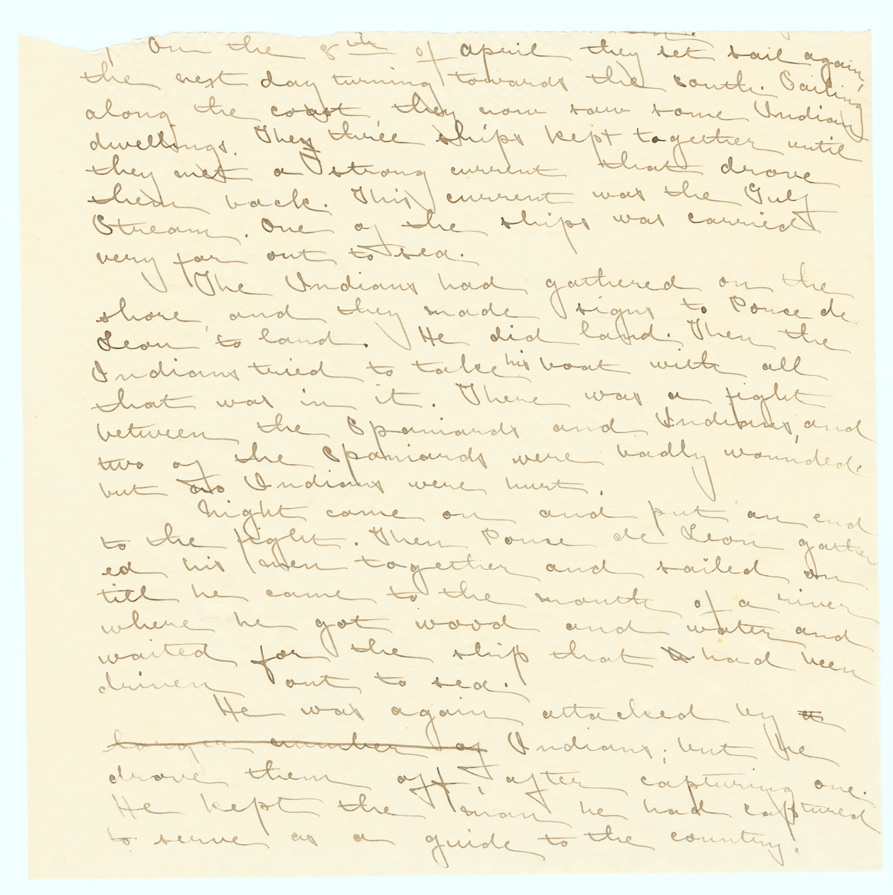 On the 8th of april they set sail again,
the next day turning towards the south. Sailing
along the coast they now saw some Indian
dwellings. They three ships kept together until
they met a strong current that drove
them back. This current was the Gulf
Stream. One of the ships was carried
very far out to sea.
The Indians had gathered on the
shore and they made signs to Ponce de
Leon to land. He did land. Then the
Indians tried to take his boat with all
that was in it. There was a fight
between the Spaniards and Indians, and
two of the Spaniards were badly wounded.
but no Indians were hurt.
Night came on and put an end
to the fight. Then Ponce de Leon gather
ed his men together and sailed on
till he came to the mouth of a river
where he got wood and water and
waited for the ship that had been
driven out to sea.
He was again attacked by
larger number of Indians, but he
drove them off, after capturing one.
He kept the man he had captured
to serve as a guide to the country.